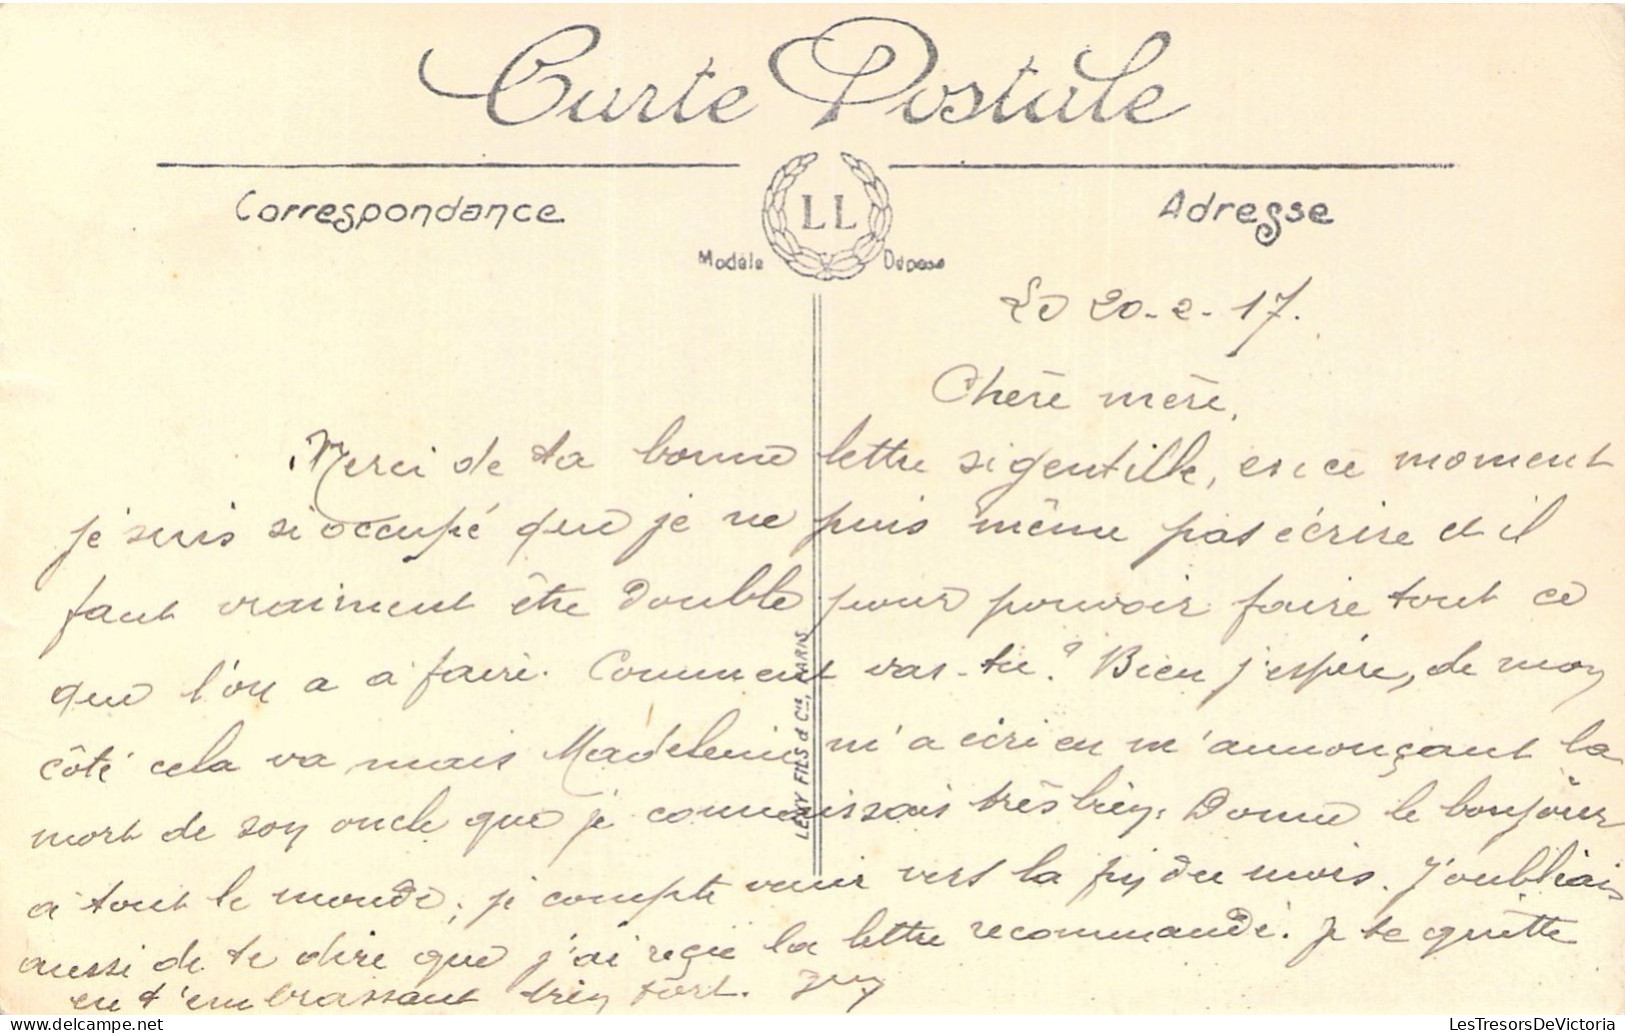 Carte Postale
Correspondance
LL
Modèle Déposé
Adresse
Le 20-2-17.
Chère mère,
Merci de ta bonne lettre si gentille, en ce moment
je suis si occupé que je ne puis même pas écrire et il
faut vraiment être double pour pouvoir faire tout ce
que l'on a à faire. Comment vas-tu? Bien j'espère, de mon
côté cela va mais Madeleine m'a écri en m'annonçant la
mort de son oncle que je connaissais très bien. Donne le bonjour
à tout le monde, je compte venir vers la fin du mois. J'oubliais
aussi de te dire que j'ai reçue la lettre recommandé. Je te quitte
en t'embrassant bien fort. Guy
LEVY FILS & Cie, PARIS
LesTresorsDeVictoria